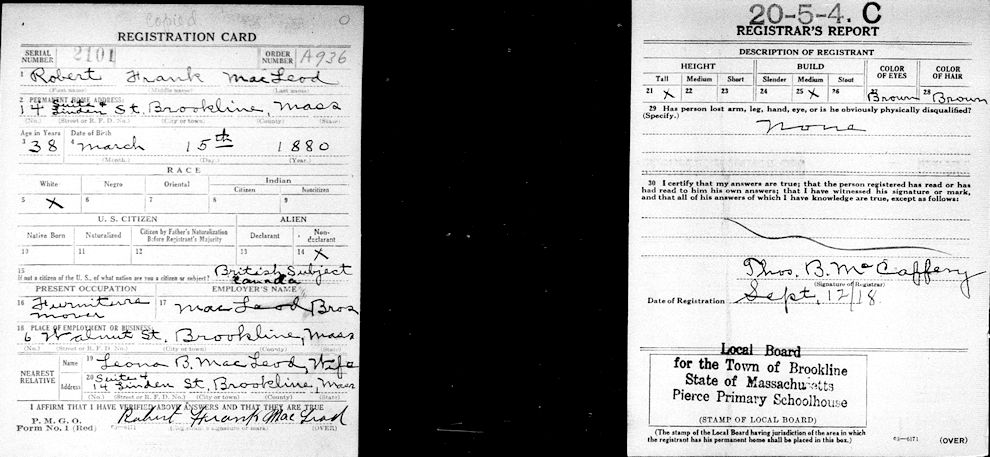 Copied
REGISTRATION CARD
SERIAL NUMBER 2101 ORDER NUMBER A936
1 Robert Frank MacLeod
(First name) (Middle name) (Last name)
2 PERMANENT HOME ADDRESS:
Suite 4
14 Linden St, Brookline, Mass
(No.) (Street or R. F. D. No.) (City or town) (County) (State)
Age in Years Date of Birth
3 38 4 March 15th 1880
(Month.) (Day.) (Year.)
RACE
White Negro Oriental Indian
Citizen Noncitizen
5 X 6 7 8 9
U. S. CITIZEN ALIEN
Native Born Naturalized Citizen by Father's Naturalization Before Registrant's Majority Declarant Non-declarant
10 11 12 13 14 X
15 British Subject
If not a citizen of the U. S., of what nation are you a citizen or subject? Canada
PRESENT OCCUPATION EMPLOYER'S NAME
16 Furniture mover 17 MacLeod Bros
18 PLACE OF EMPLOYMENT OR BUSINESS:
6 Walnut St, Brookline, Mass
(No.) (Street or R. F. D. No.) (City or town) (County) (State)
NEAREST RELATIVE
Name 19 Leona B. MacLeod, Wife
Address 20 Suite 4
14 Linden St, Brookline, Mass
(No.) (Street or R. F. D. No.) (City or town) (County) (State)
I AFFIRM THAT I HAVE VERIFIED ABOVE ANSWERS AND THAT THEY ARE TRUE
P. M. G. O.
Form No. 1 (Red) Robert Frank MacLeod
(Registrant's signature or mark) (OVER)
20-5-4. C
REGISTRAR'S REPORT
DESCRIPTION OF REGISTRANT
HEIGHT BUILD COLOR OF EYES COLOR OF HAIR
Tall Medium Short Slender Medium Stout
21 X 22 23 24 25 X 26 27 Brown 28 Brown
29 Has person lost arm, leg, hand, eye, or is he obviously physically disqualified?
(Specify.) None
30 I certify that my answers are true; that the person registered has read or has
had read to him his own answers; that I have witnessed his signature or mark,
and that all of his answers of which I have knowledge are true, except as follows:
Thos. B. McCaffery
(Signature of Registrar)
Date of Registration Sept. 12/18.
Local Board
for the Town of Brookline
State of Massachusetts
Pierce Primary Schoolhouse
(STAMP OF LOCAL BOARD)
(The stamp of the Local Board having jurisdiction of the area in which
the registrant has his permanent home shall be placed in this box.)
03—6171 (OVER)